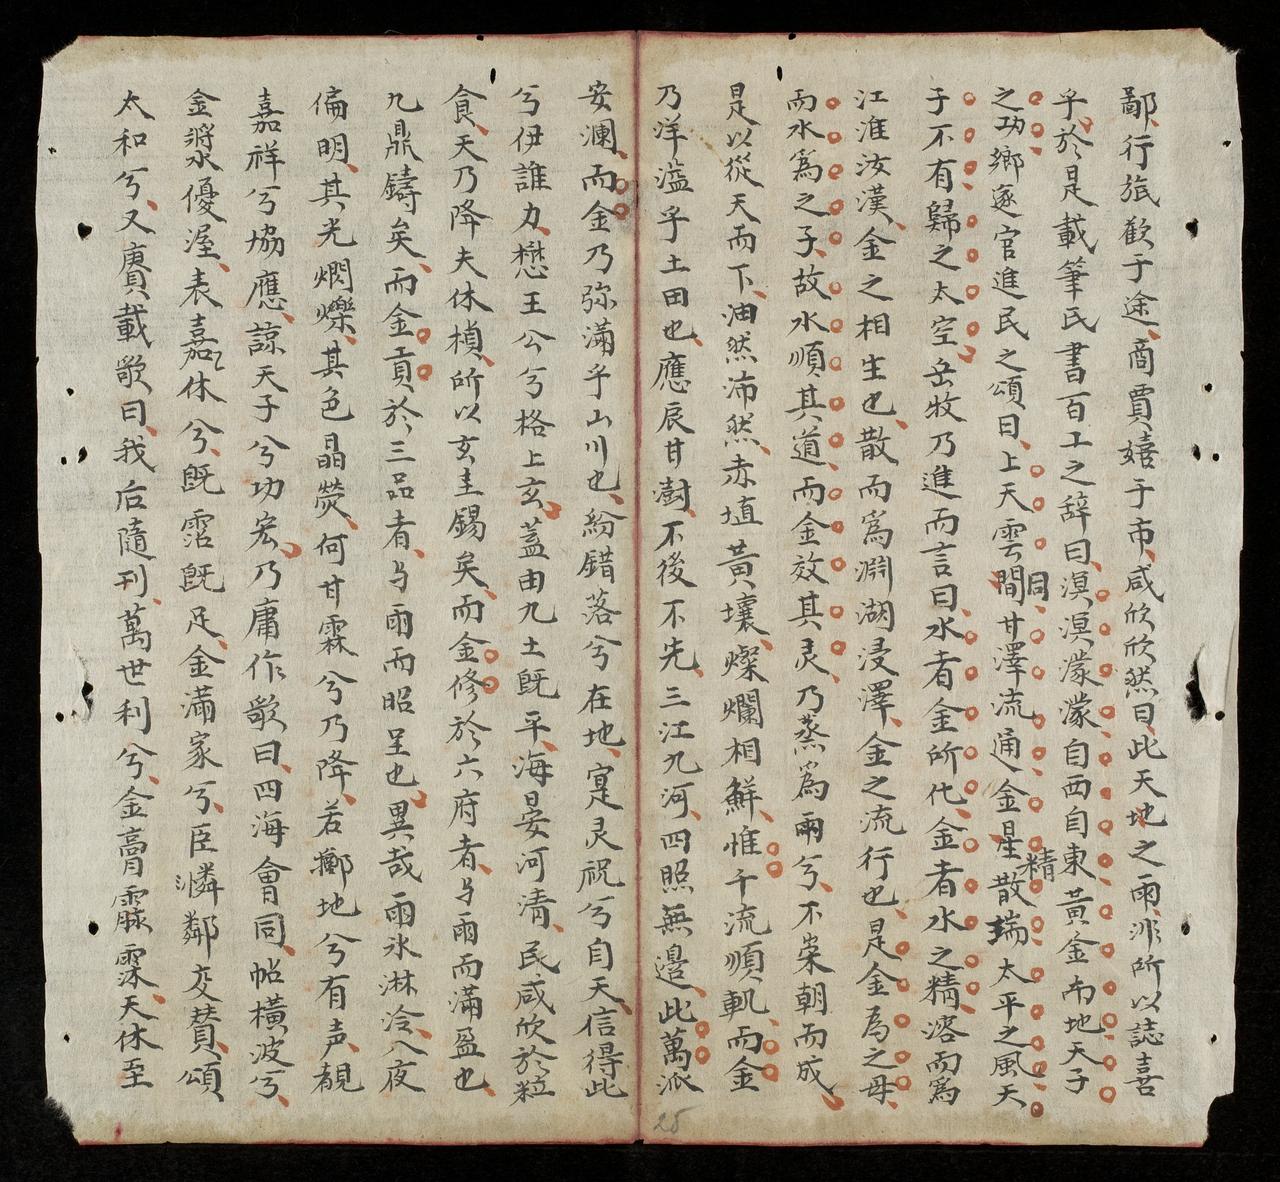 鄙、行旅歡于途、商賈嬉于市、咸欣欣然曰、此天地之雨、非所以誌喜
乎、於是載筆氏書百工之辞曰、溟溟濛濛、自西自東、黃金布地、天子
之功、鄉逐官進民之頌曰、上天雲同、甘澤流通、金精散瑞、太平之風、天
子不有、歸之太空、岳牧乃進而言曰、水者金所化、金者水之精、溶而爲
江淮汝漢、金之相生也、散而爲淵湖浸澤、金之流行也、是金爲之母、
而水爲之子、故水順其道、而金效其灵、乃蒸爲雨兮、不崇朝而成、
是以從天而下、油然沛然、赤埴黃壤、燦爛相鮮、惟千流順軌、而金
乃洋溢乎土田也、應辰甘澍、不後不先、三江九河、四照無邊、此萬派
安瀾、而金乃弥滿乎山川也、紛錯落兮在地、寔灵祝兮自天、信得此
兮伊誰力、懋王公兮格上玄、蓋由九土既平、海晏河清、民咸欣於粒
食、天乃降夫休楨、所以玄圭錫矣、而金修於六府者、与雨而滿盈也、
九鼎鑄矣、而金貢於三品者、与雨而昭呈也、異哉雨氷淋冷、入夜
偏明、其光爛爍、其色晶熒、何甘霖兮乃降、若擲地兮有声、覩
嘉祥兮協應、諒天子兮功宏、乃庸作歌曰、四海會同、帖橫波兮、
金漿優渥、表嘉休兮、既霑既足、金滿家兮、臣憐鄰交贊、頌
太和兮、又賡載歌曰、我后隨刊、萬世利兮、金膏霢霂、天休至
25